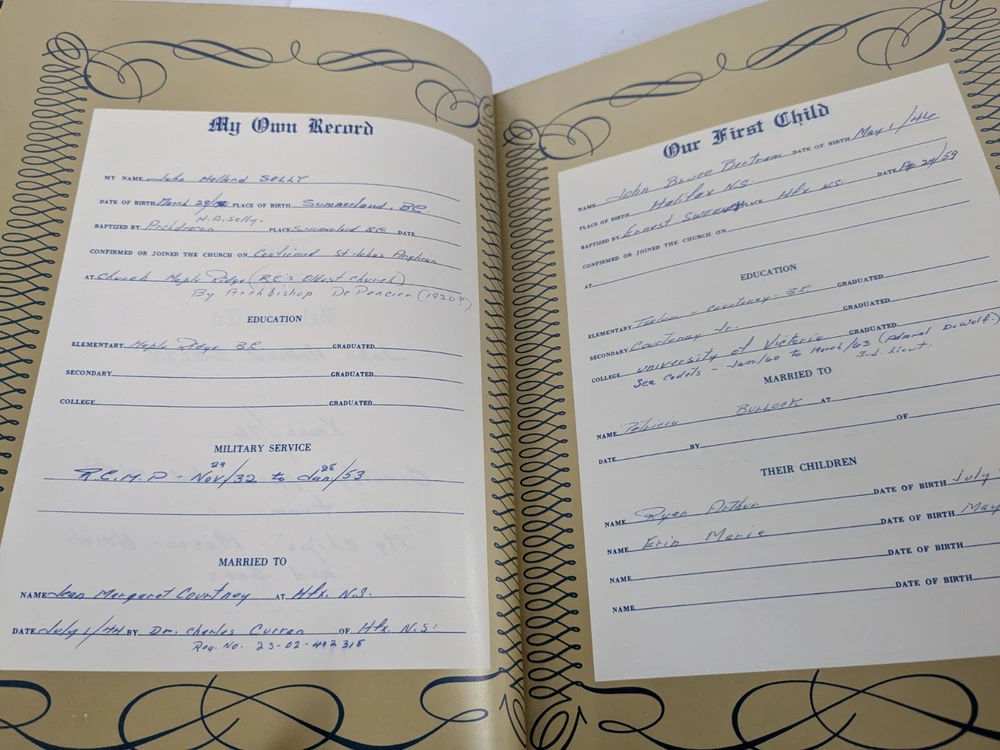 My Own Record
MY NAME John Holland SOLLY
DATE OF BIRTH March 29/ PLACE OF BIRTH Summerland, BC.
H.A. Solly.
BAPTIZED BY PLACE Summerland BC DATE
CONFIRMED OR JOINED THE CHURCH ON Confirmed St Johns Anglican
AT Church Maple Ridge (BC's Oldest Church)
By Archbishop De Pencier (1920?)
EDUCATION
ELEMENTARY Maple Ridge BC GRADUATED
SECONDARY GRADUATED
COLLEGE GRADUATED
MILITARY SERVICE
R.C.M.P - Nov 29/32 to Jan 28/53
MARRIED TO
NAME Jean Margaret Courtney AT Hfx. N.S.
DATE July 1/44 BY Dr. Charles Curran OF Hfx. N.S.
Reg. No. 23-02-492318
Our First Child
NAME John Bruce Bertram DATE OF BIRTH May 1/46
PLACE OF BIRTH Halifax NS
BAPTIZED BY Ernest SWEENEY PLACE Hfx N.S. DATE Ap 24/59
CONFIRMED OR JOINED THE CHURCH ON
AT
EDUCATION
ELEMENTARY - Courtenay - BC GRADUATED
SECONDARY Courtenay Jr. GRADUATED
COLLEGE University of Victoria GRADUATED
Sea Cadets - Jan/60 to March/63 (Admiral DeWolf.)
Sub Lieut.
MARRIED TO
NAME Patricia BULLOCK AT
DATE BY OF
THEIR CHILDREN
NAME Ryan Arthur DATE OF BIRTH July
NAME Erin Marie DATE OF BIRTH May
NAME DATE OF BIRTH
NAME DATE OF BIRTH